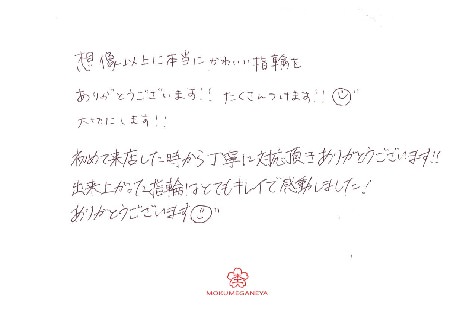 想像以上に本当にかわいい指輪を
ありがとうございます!! たくさんつけます!!
大切にします!!
初めて来店した時から丁寧に対応頂きありがとうございます!!
出来上がった指輪はとてもキレイで感動しました!
ありがとうございます
MOKUMEGANEYA